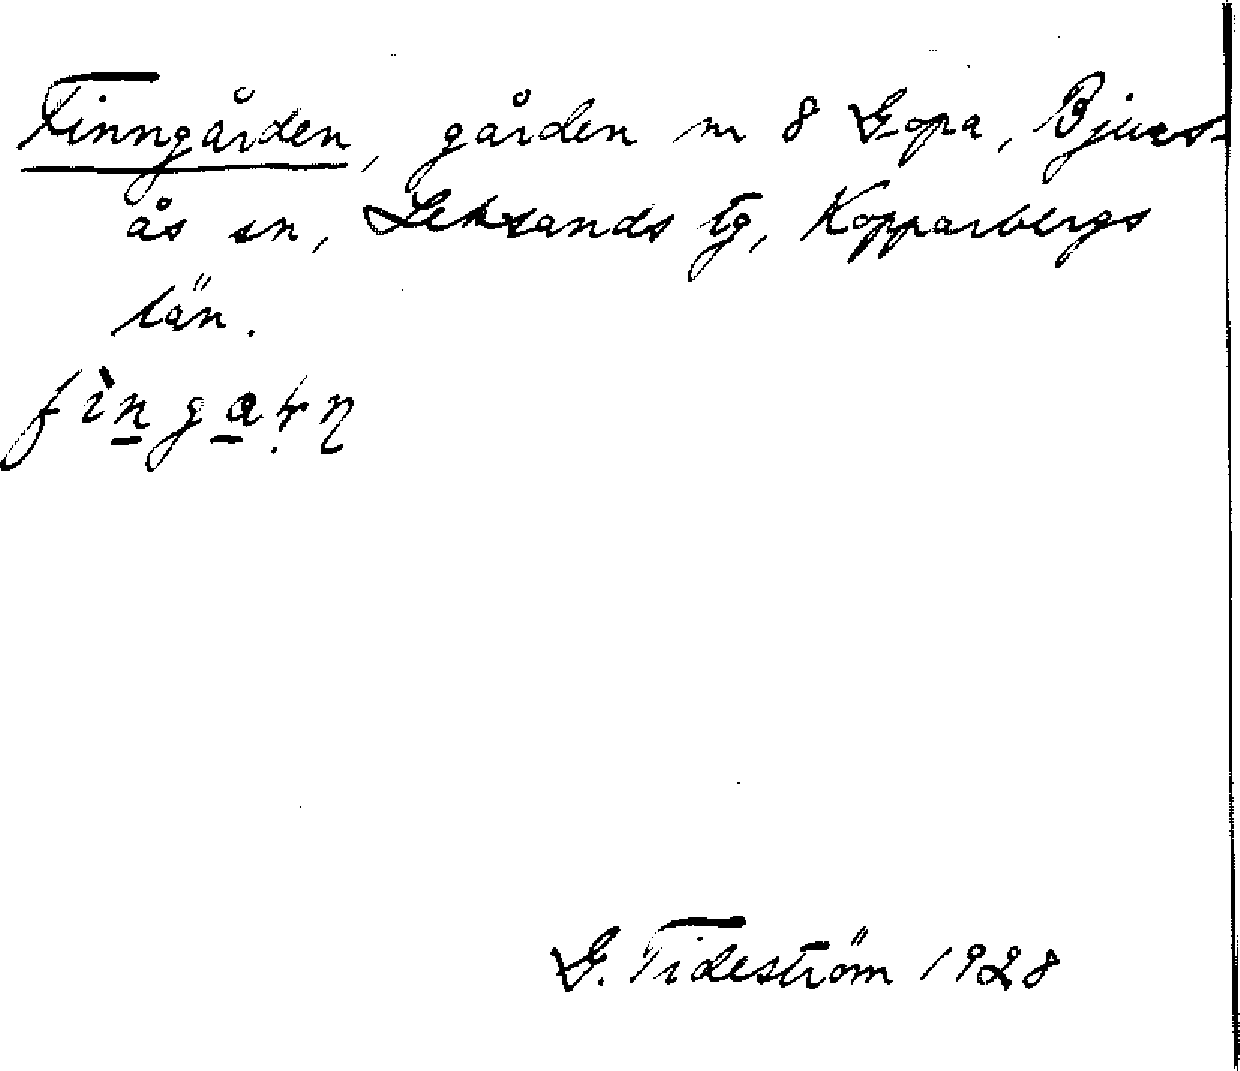 Finngården, gården nr 8 Gopa, Bjurs-
ås sn, Leksands tg, Kopparbergs
län.
G. Tideström 1928